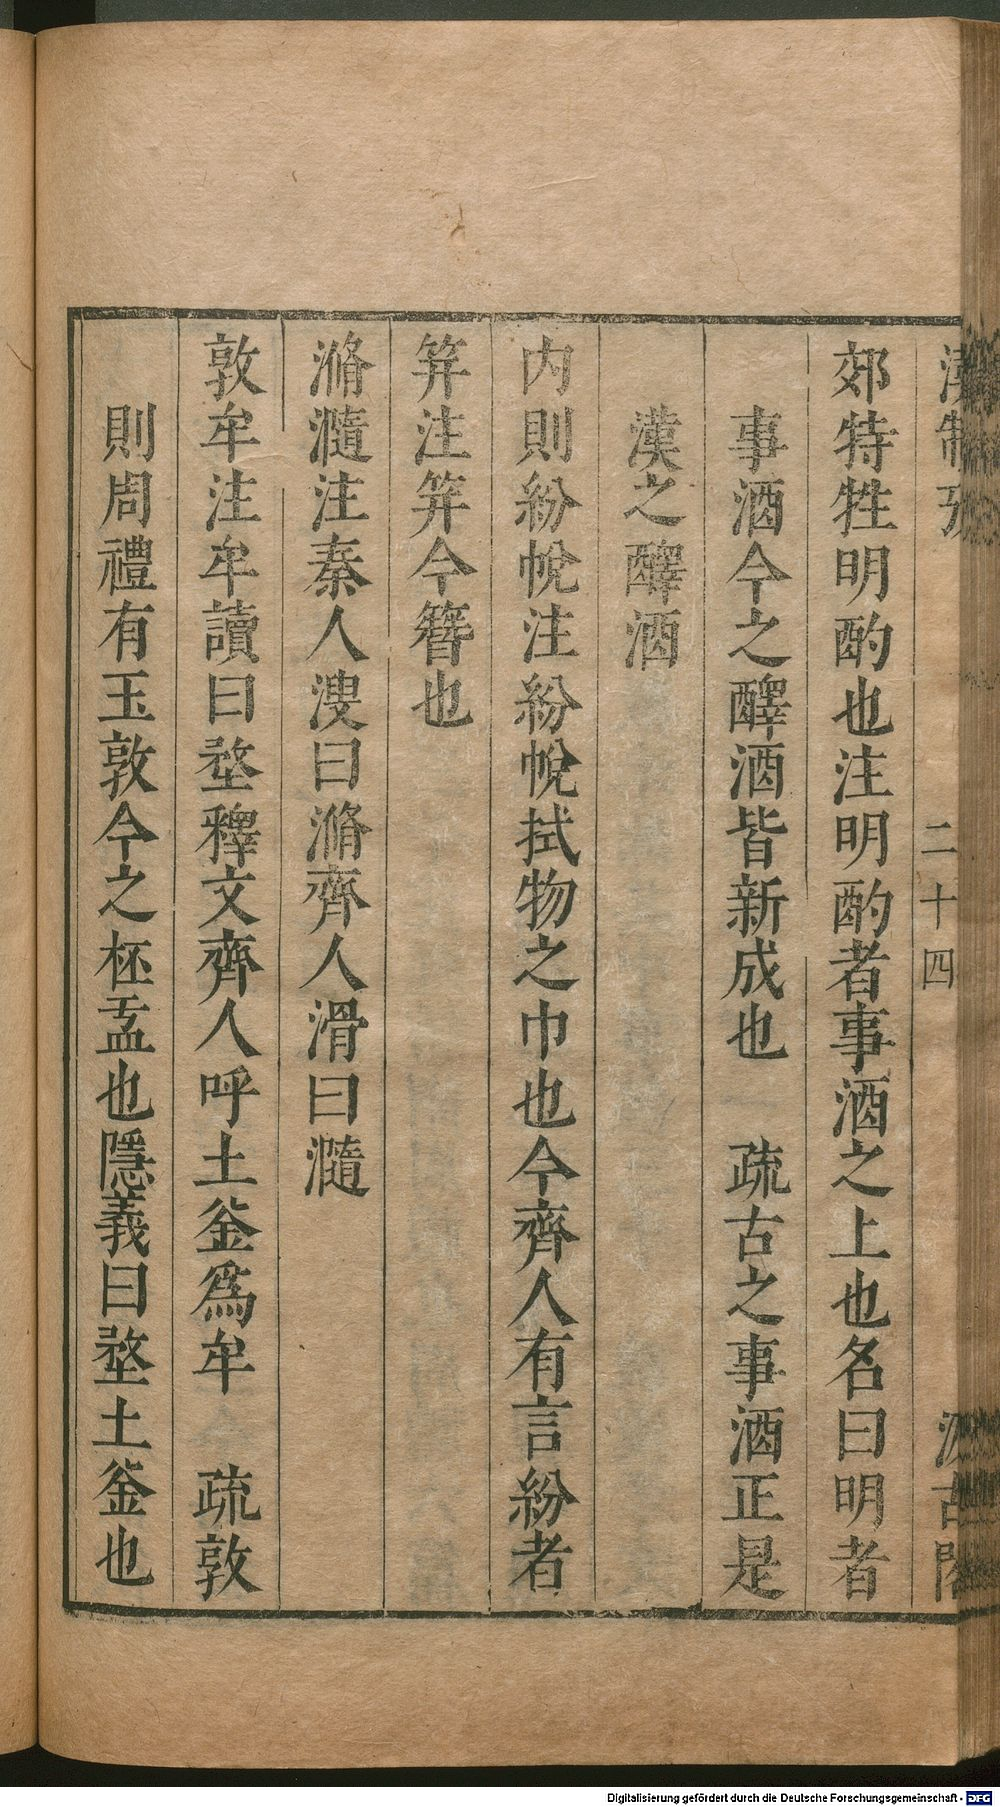 漢制攷 二十四 汲古閣
郊特牲明酌也注明酌者事酒之上也名曰明者
事酒今之醳酒皆新成也 疏古之事酒正是
漢之醳酒
內則紛帨注紛帨拭物之巾也今齊人有言紛者
笄注笄今簪也
滫瀡注秦人溲曰滫齊人滑曰瀡
敦牟注牟讀曰堥釋文齊人呼土釜爲牟 疏敦
則周禮有玉敦今之杯盂也隱義曰堥土釜也
Digitalisierung gefördert durch die Deutsche Forschungsgemeinschaft - DFG